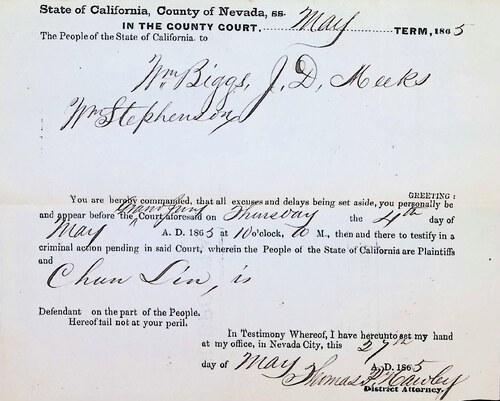 State of California, County of Nevada, ss.
IN THE COUNTY COURT, May TERM, 1865
The People of the State of California. to
Wm Biggs, J. D. Meeks
Wm Stephenson
GREETING:
You are hereby commanded, that all excuses and delays being set aside, you personally be
Grand Jury
and appear before the Court aforesaid on Thursday the 4th day of
May A. D. 1865 at 10 o'clock, M., then and there to testify in a
criminal action pending in said Court, wherein the People of the State of California are Plaintiffs
and
Chun Lin, is
Defendant on the part of the People.
Hereof fail not at your peril.
In Testimony Whereof, I have hereunto set my hand
at my office, in Nevada City, this 27th
day of May A.D. 1865
Thomas P. Hawley
District Attorney.